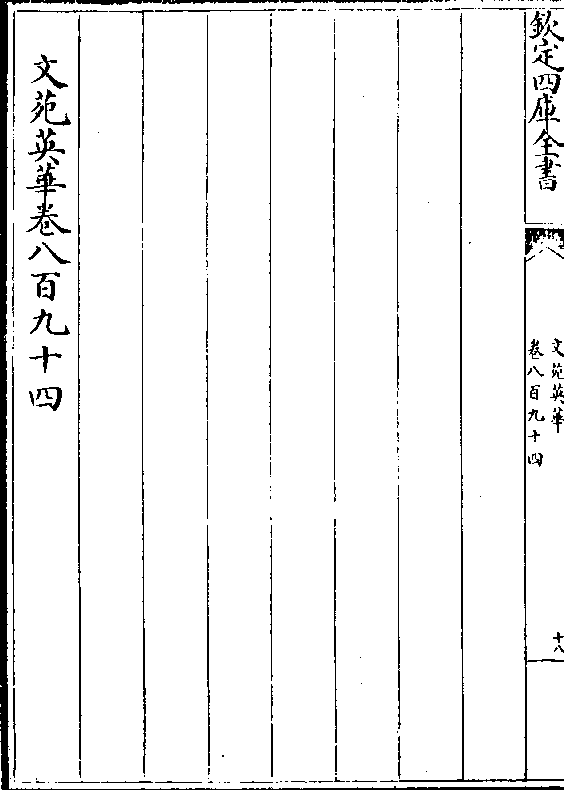 欽定四庫全書
文苑英華
卷八百九十四
十八
文苑英華卷八百九十四